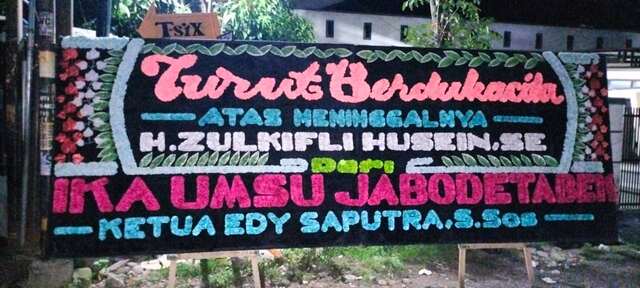 T-SIX
Turut Berdukacita
ATAS MENINGGALNYA
H. ZULKIFLI HUSEIN, SE
Dari
IKA UMSU JABODETABEK
KETUA EDY SAPUTRA, S.Sos